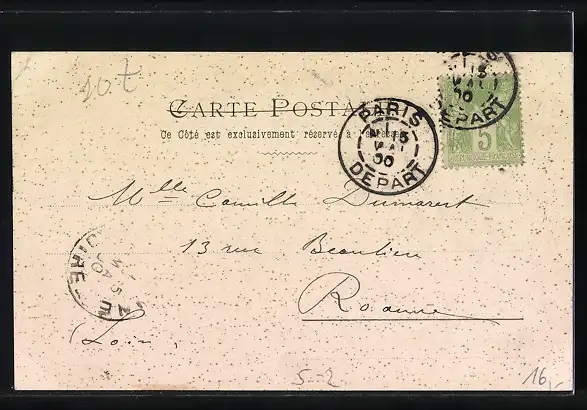 10t
CARTE POSTALE
Ce Côté est exclusivement réservé à l'adresse
PARIS
15
MAI
00
DEPART
PARIS
15
MAI
00
DEPART
5
REPUBLIQUE FRANÇAISE
Mlle Camille Dumarest
13 rue Beaulieu
Roanne
Loire
5-2
16,-